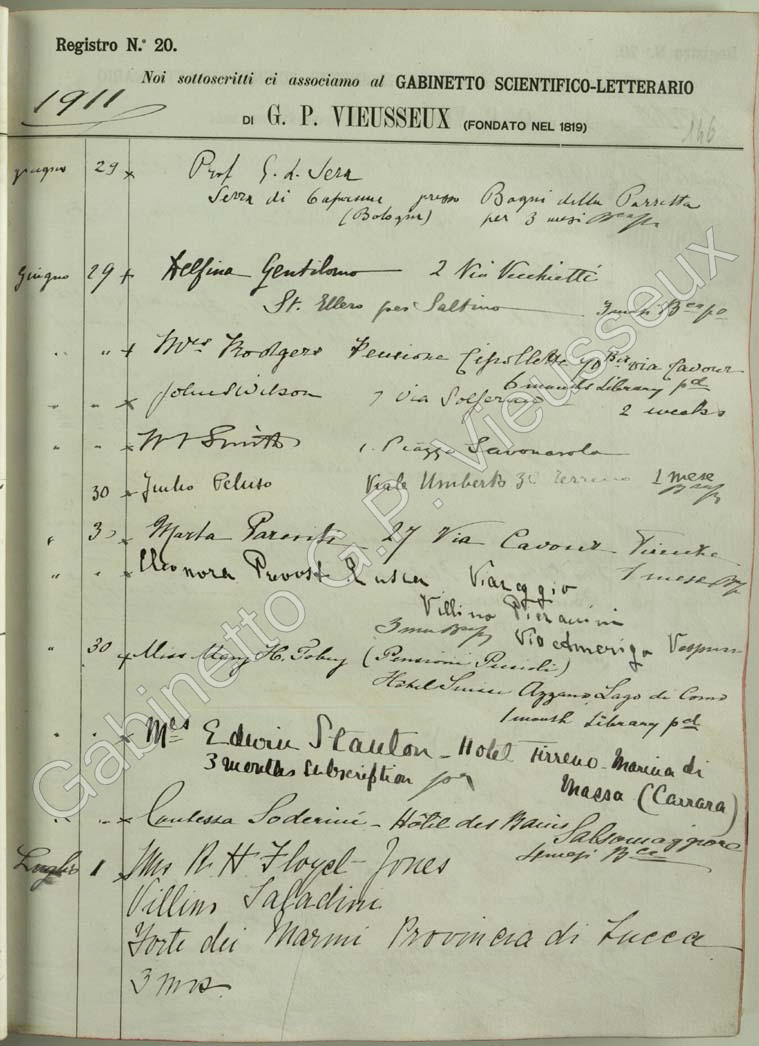 Registro N.° 20.
Noi sottoscritti ci associamo al GABINETTO SCIENTIFICO-LETTERARIO
1911
DI G. P. VIEUSSEUX (FONDATO NEL 1819)
146
giugno 29 x Prof G. L. Sera
presso Bagni della Porretta
(Bologna) per 3 mesi
Giugno 29 + Delfina Gentilomo 2 Via Vecchietti
St. Ellero per Saltino 3 mesi Bca
" + Mrs Rodgers Pensione Via Cavour
6 months Library pd
" " x John S Wilson 7 Via Solferino 2 weeks
" " x Smith 1. Piazza Savonarola
30 x Peluso Viale Umberto 30 terreno 1 mese
" 30 x Marta 27 Via Cavour Firenze
1 mese
" " x Eleonora Viareggio
Villino
3 Via Amerigo
" 30 x Miss Mary H. (Pensioni)
Azzano, Lago di Como
1 month Library pd
" " x Mrs Edwin Stanton - Hotel Tirreno - Marina di
3 months subscription Massa (Carrara)
" " x Contessa Soderini - Hôtel des Bains Salsomaggiore
4 mesi Bca
Luglio 1 Mrs R H Floyd-Jones
Villino Saladini
Forte dei Marmi Provincia di Lucca
3 mos.
Gabinetto G.P. Vieusseux